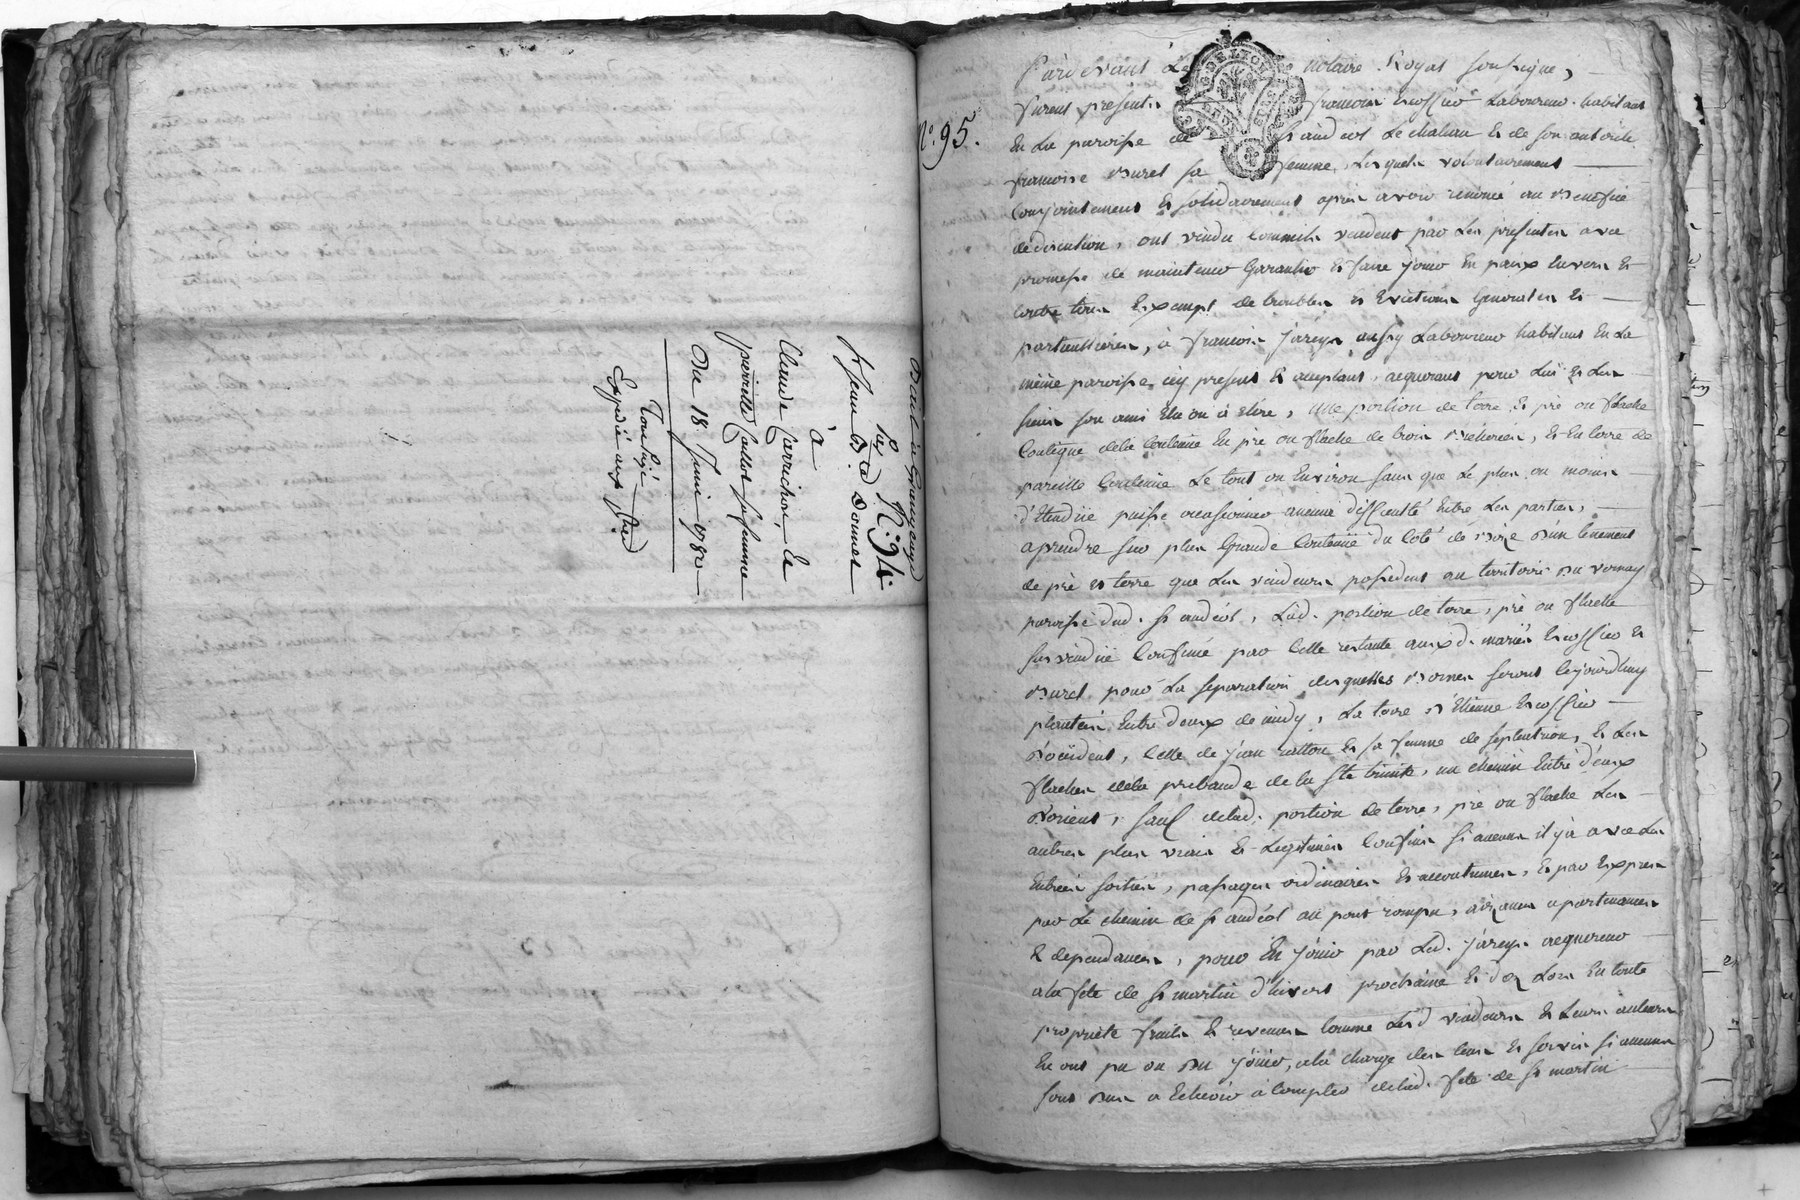 N.° 94.
Jean B.
à
Claude Perrichon, &
pierrette Caillot sa femme
Du 18. Juin 1780
Expedié aux
N.° 95.
Pardevant Le notaire Royal soussigné,
furent presents françois Escoffier Laboureur habitant
En La paroisse de St andeol Le chateau & de son autorité
françoise Buret sa femme, Lesquels volontairement
Conjointement & solidairement après avoir renoncé au Benefice
de discution, ont vendu comme ils vendent par Les presentes avec
promesse de maintenir Garantir & faire jouir En paix Envers &
contre tous Exempt de troubles & Evictions Generales &
particulieres, à françois jareys aussy Laboureur habitant En La
même paroisse, icy present & acceptant, acquerant pour Lui & Les
siens son ami Elu ou à Elire, une portion de terre & pré ou flache
Contigue de la Contenue En pré ou flache de trois Bicherées, & En terre de
pareille Contenue Le tout ou Environ sans que Le plus ou moins
d'Etendüe puisse occasionner aucune difficulté Entre Les parties,
aprendre sur plus Grande Contenüe du Coté de Bize d'un tenement
de pré & terre que Les vendeurs possedent au territoire du vernay
paroisse dud. St andéol, Lad. portion de terre, pré ou flache
sus vendüe Confiné par Celle restante auxd. mariés Escoffier &
Buret, pour La separation desquelles Bornes seront cejourdhuy
plantés Entre deux de midy, La terre d'Etienne Escoffier
d'occident, Celle de jean & sa femme de septentrion, & Les
flaches de la prebande de la Ste trinité, un chemin Entre deux
d'orient, sauf de lad. portion de terre, pré ou flache Les
autres plus vrais & Legitimes Confins si aucuns il y à avec Les
Entrées sorties, passages ordinaires & accoutumés, & par Exprès
par Le chemin de St andéol au pont rompu, aizances apartenances
& dependances, pour En jouir par Led. jareys acquereur
a la fete de St martin d'hivert prochaine & dez Lors En toute
proprieté fruits & revenus Comme Lesd vendeurs & Leurs auteurs
En ont pu ou du jouir, a la charge des Cens & servis si aucuns
sont dus a Echeoir à Compter de lad. fete de St martin